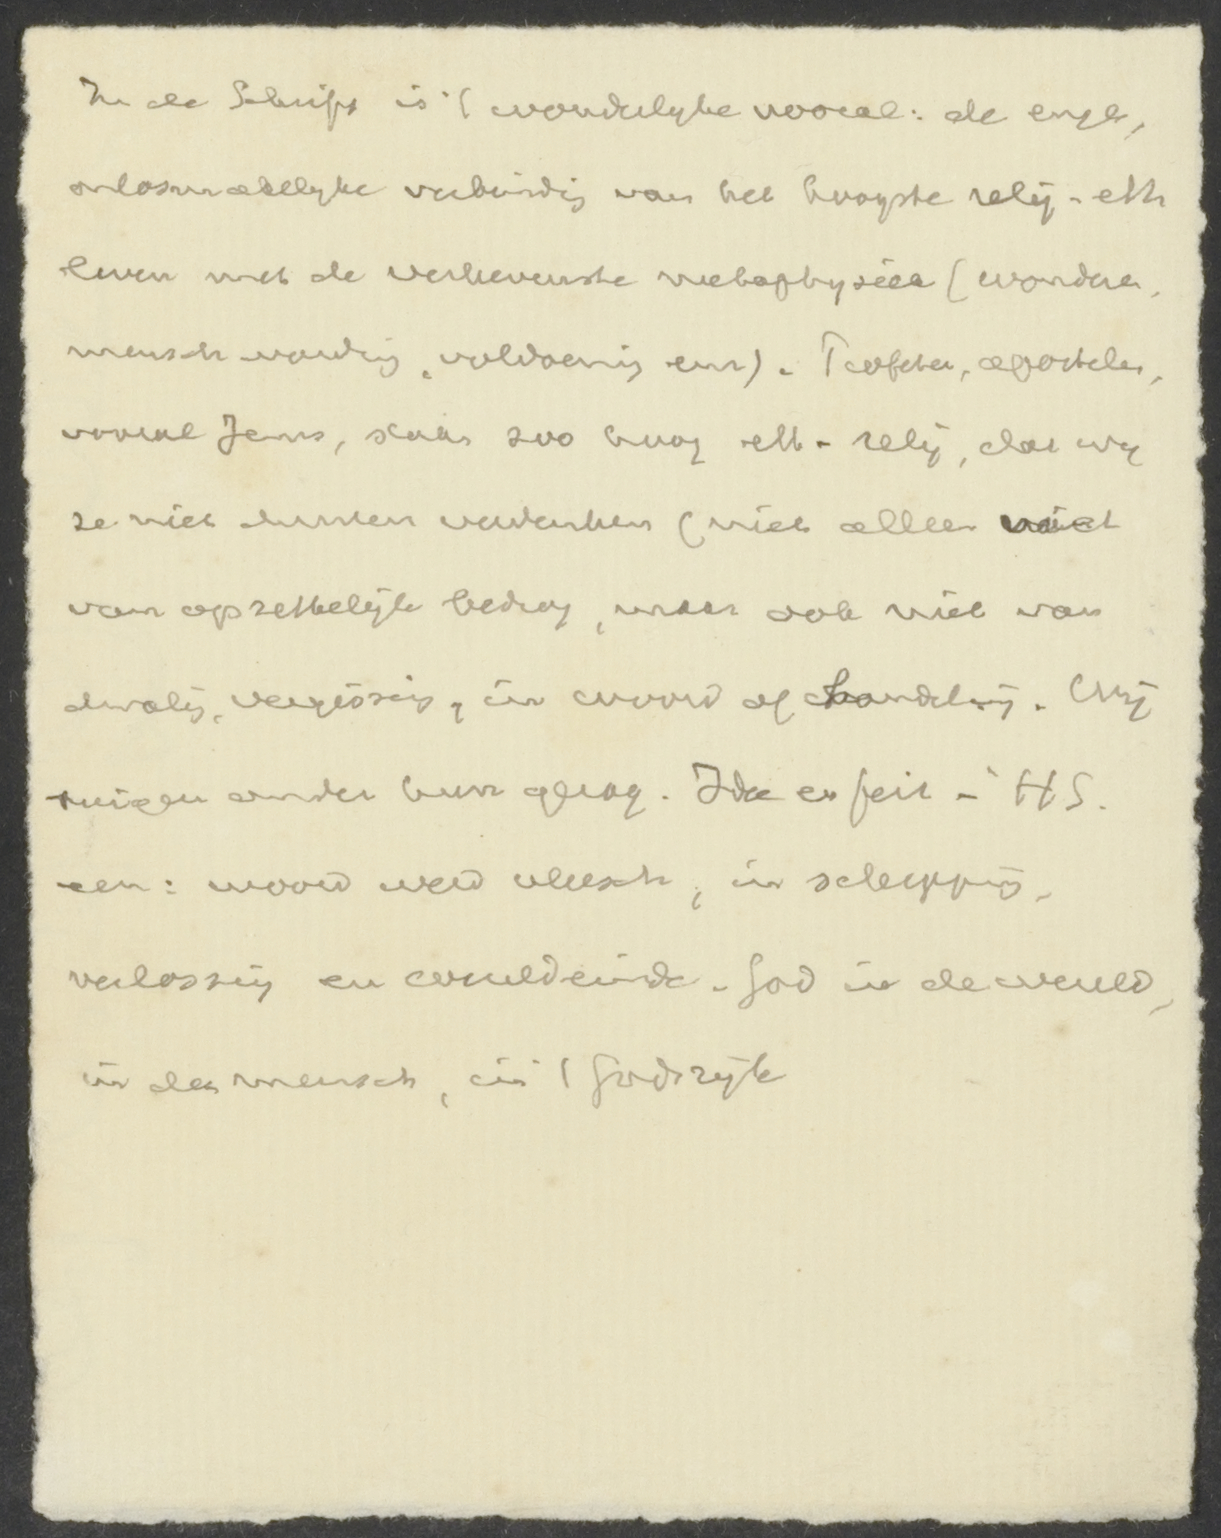 In de Schrift is 't wonderlyke vooral: de enge,
onlosmakelyke verbindig van het hoogste relig-eth
leven met de verhevenste metaphysica (wonderen,
menschwording, voldoening enz). Profeten, apostelen,
vooral Jezus, staan zoo hoog eth-relig, dat wy
ze niet durven verdenken (niet alleen niet
van opzettelijk bedrog, maar ook niet van
dwalig, vergissig, in woord of handeling. Wij
buigen onder hun gezag. Idee en feit in HS.
een: woord werd vleesch, in schepping,
verlossing en wereldeinde. God in de wereld,
in den mensch, in 't Godsrijk